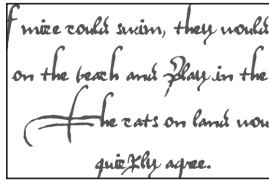 f mize could swim, they would
on the beach and Play in the
The cats on land wou
quickly agree.